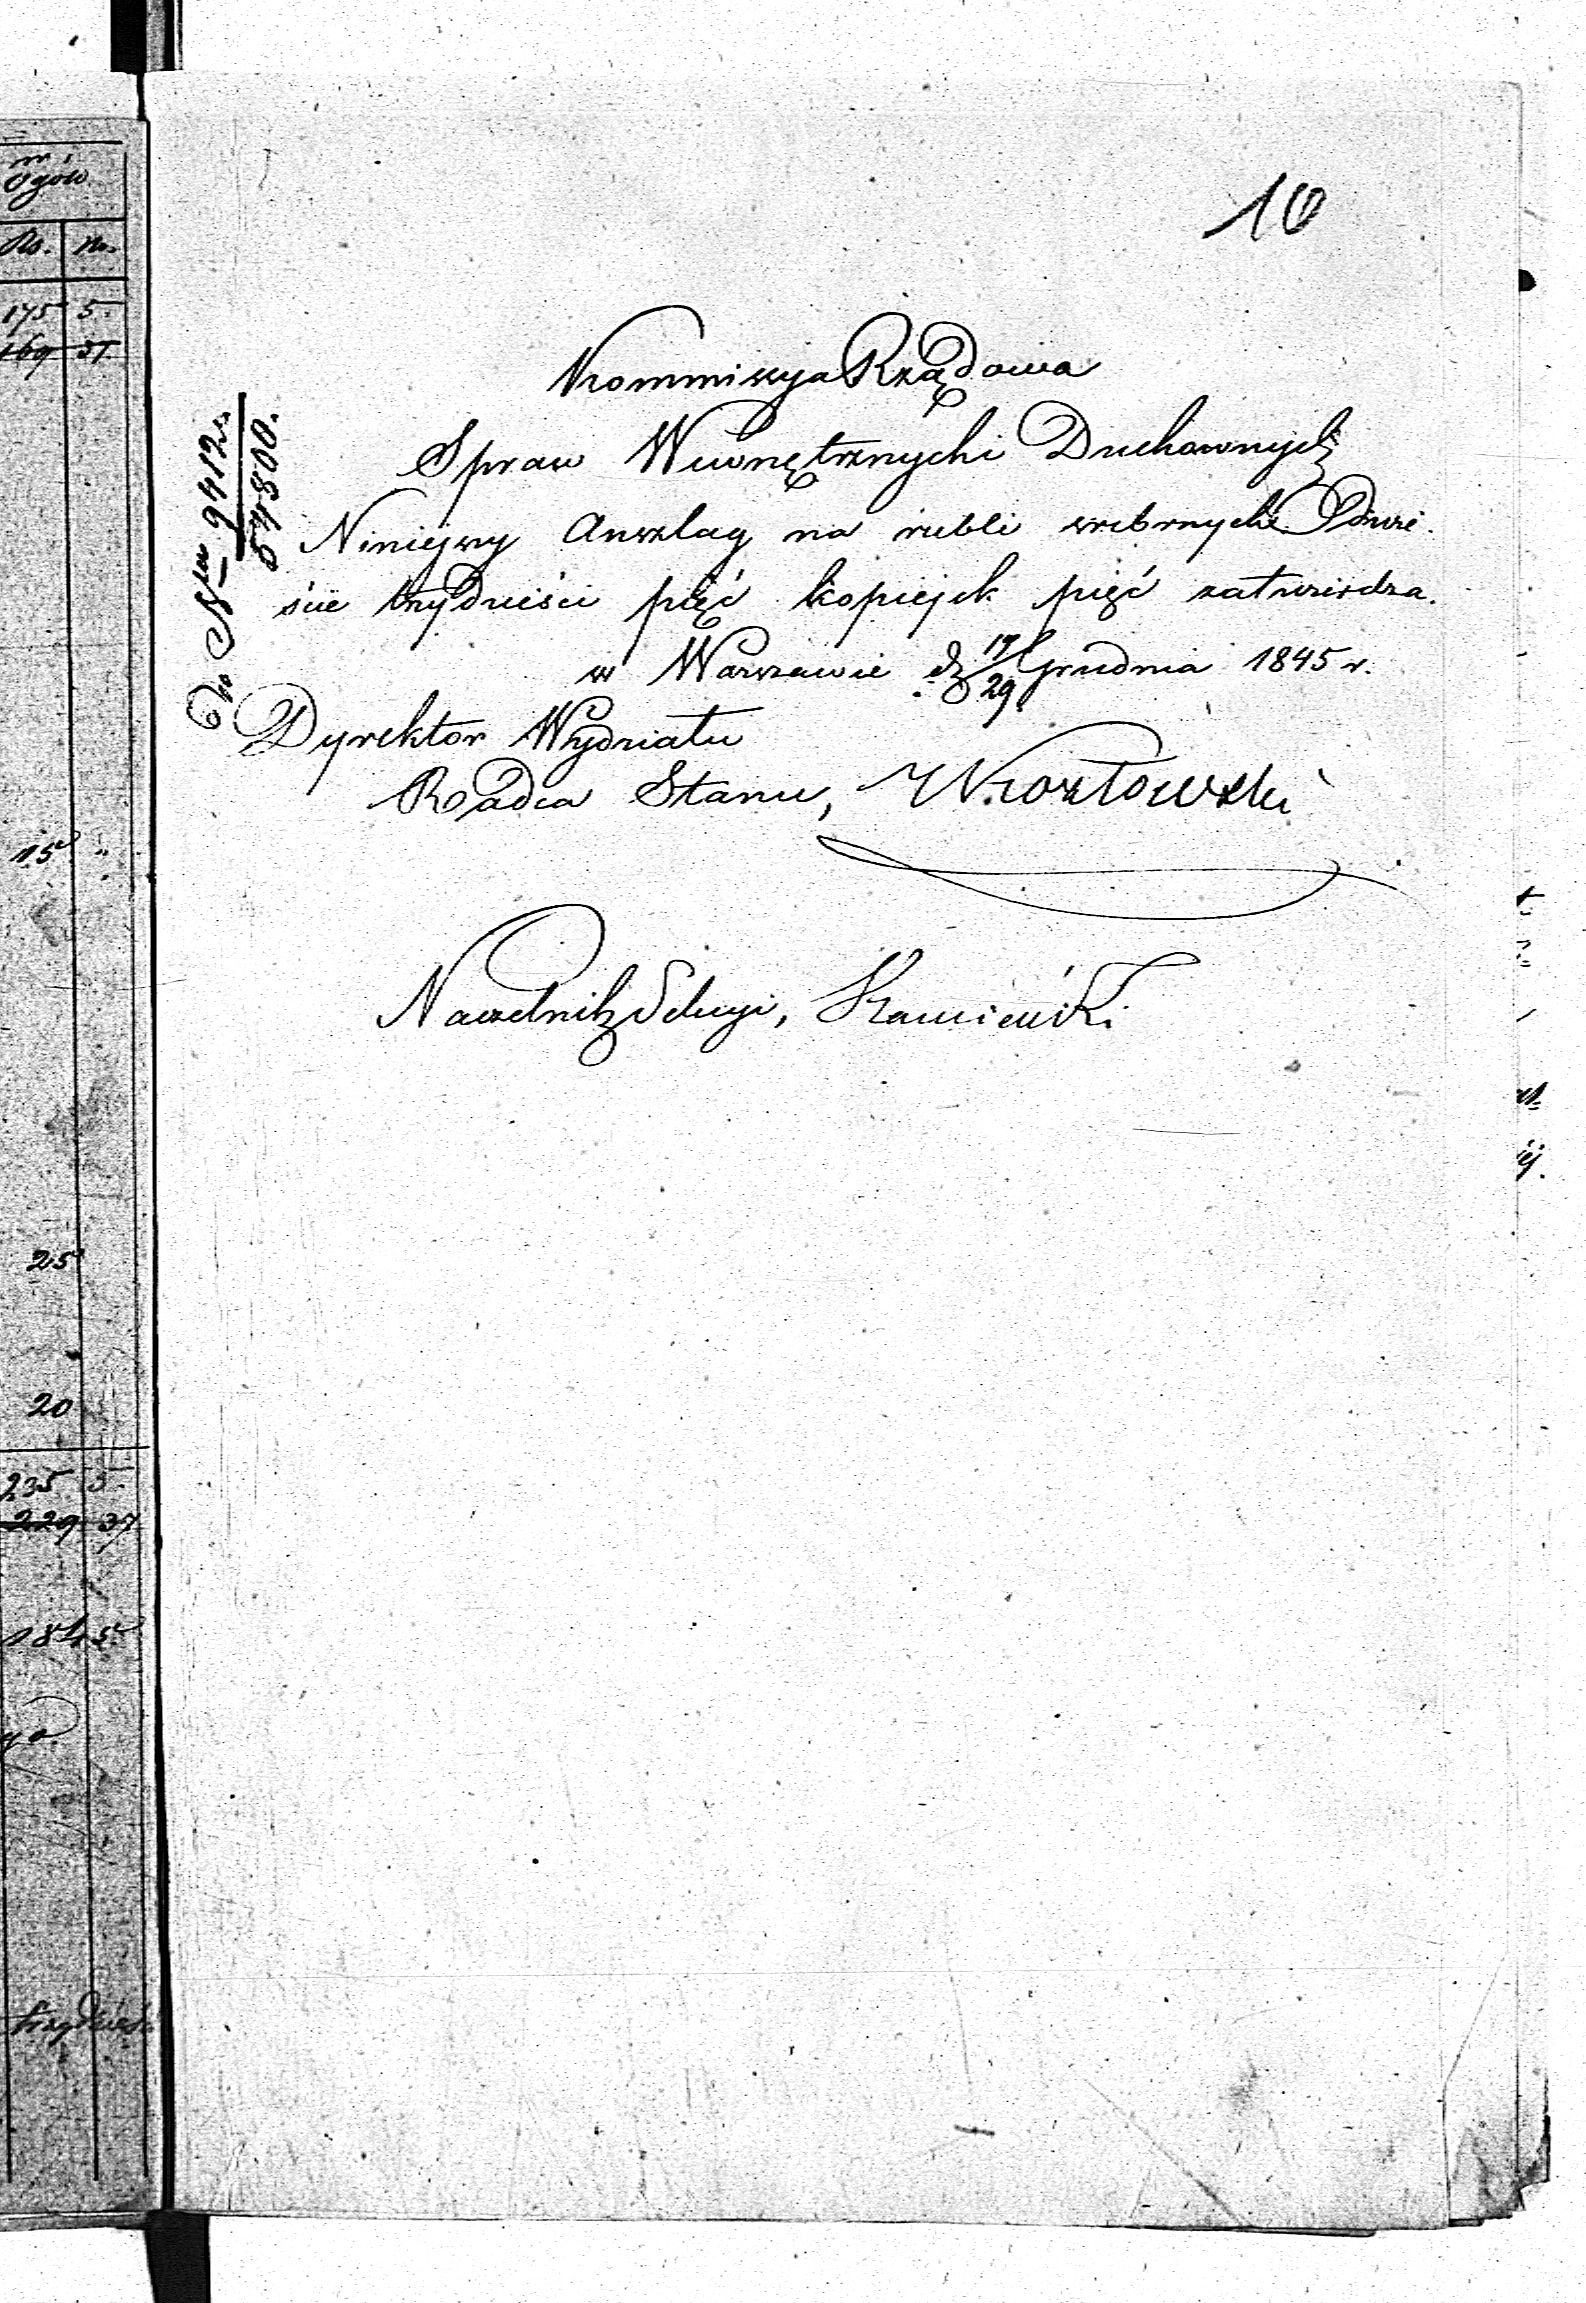 10
Kommissya Rządowa
Spraw Wewnętrznych i Duchownych
Niniejszy Anszlag na rubli srebrnych Dwie-
ście trzydzieści pięć kopiejek pięć zatwierdza.
w Warszawie d. 17/29 Grudnia 1845 r.
Dyrektor Wydziału
Radca Stanu, Kozłowski
Naczelnik Sekcyi, Kamieński
Do Nru 9412
54800.
ogół
Rs. K.
175 5.
15 "
25
20
235 5.
229 37
1845
trzydzieś